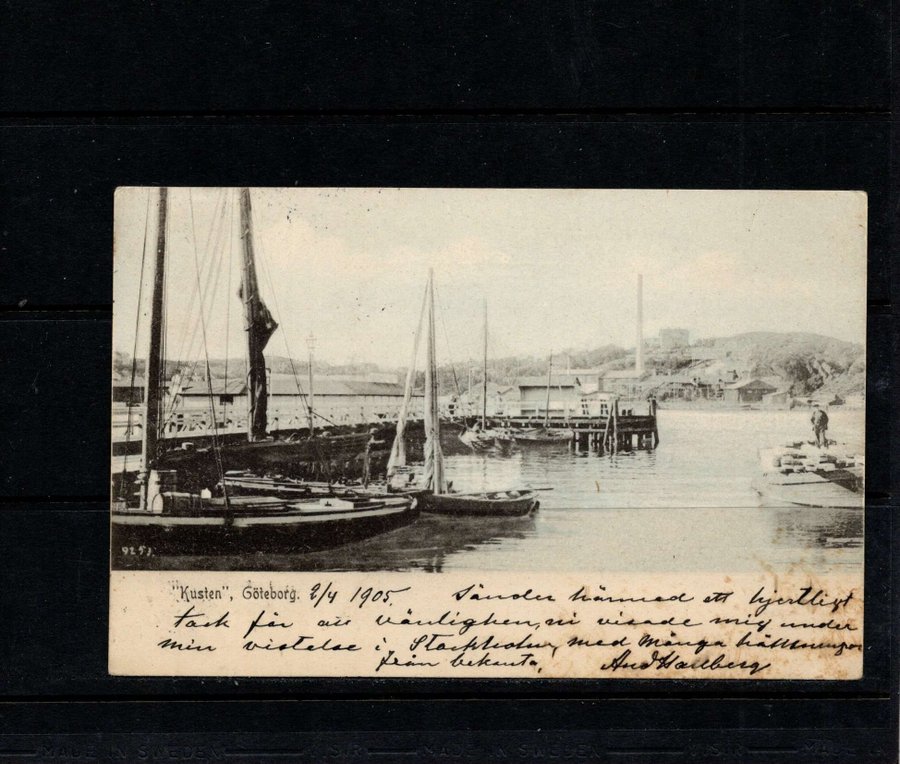 9251.
"Kusten", Göteborg. 2/4 1905. Sänder härmed ett hjertligt
tack för all vänligheten, ni visade mig under
min vistelse i Stockholm, med Många hälsningar
från bekanta. And Karlberg
MADE IN SWEDEN MADE IN SWEDEN MADE